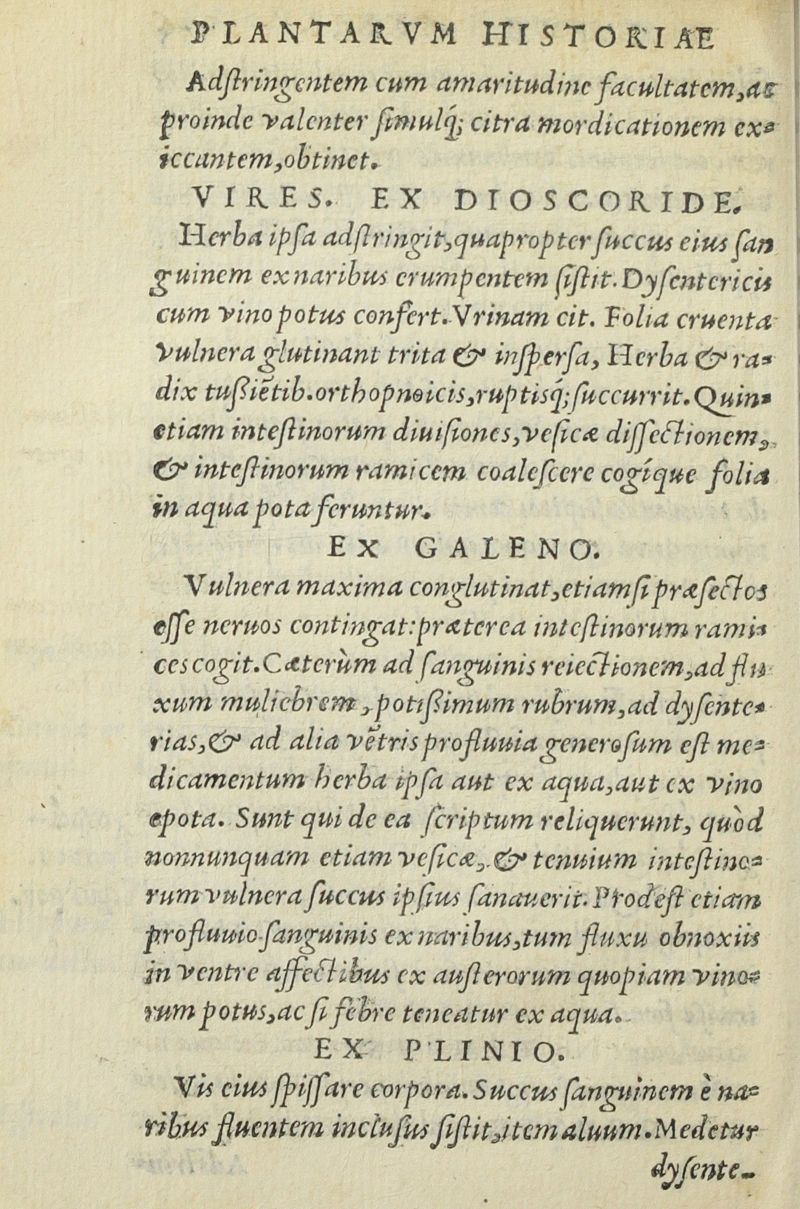 PLANTARVM HISTORIAE
Adſtringentem cum amaritudine facultatem, ac
proinde valenter ſimulq́; citra mordicationem ex-
iccantem, obtinet.
VIRES. EX DIOSCORIDE.
Herba ipſa adſtringit, quapropter ſuccus eius ſan
guinem ex naribus erumpentem ſiſtit. Dyſentericis
cum vino potus confert. Vrinam cit. Folia cruenta
vulnera glutinant trita & inſperſa, Herba & ra-
dix tußiētib. orthopnoicis, ruptisq́; ſuccurrit. Quin-
etiam inteſtinorum diuiſiones, veſicæ diſſectionem,
& inteſtinorum ramicem coaleſcere cogíque folia
in aqua pota feruntur.
EX GALENO.
Vulnera maxima conglutinat, etiamſi præſectos
eſſe neruos contingat: præterea inteſtinorum rami-
ces cogit. Cæterùm ad ſanguinis reiectionem, ad flu-
xum muliebrem, potißimum rubrum, ad dyſente-
rias, & ad alia vētris profluuia generoſum eſt me-
dicamentum herba ipſa aut ex aqua, aut ex vino
epota. Sunt qui de ea ſcriptum reliquerunt, quòd
nonnunquam etiam veſicæ, & tenuium inteſtino-
rum vulnera ſuccus ipſius ſanauerit. Prodeſt etiam
profluuio ſanguinis ex naribus, tum fluxu obnoxiis
in ventre affectibus ex auſterorum quopiam vino-
rum potus, ac ſi febre teneatur ex aqua.
EX PLINIO.
Vis eius ſpiſſare corpora. Succus ſanguinem è na-
ribus fluentem incluſus ſiſtit, item aluum. Medetur
dyſente-